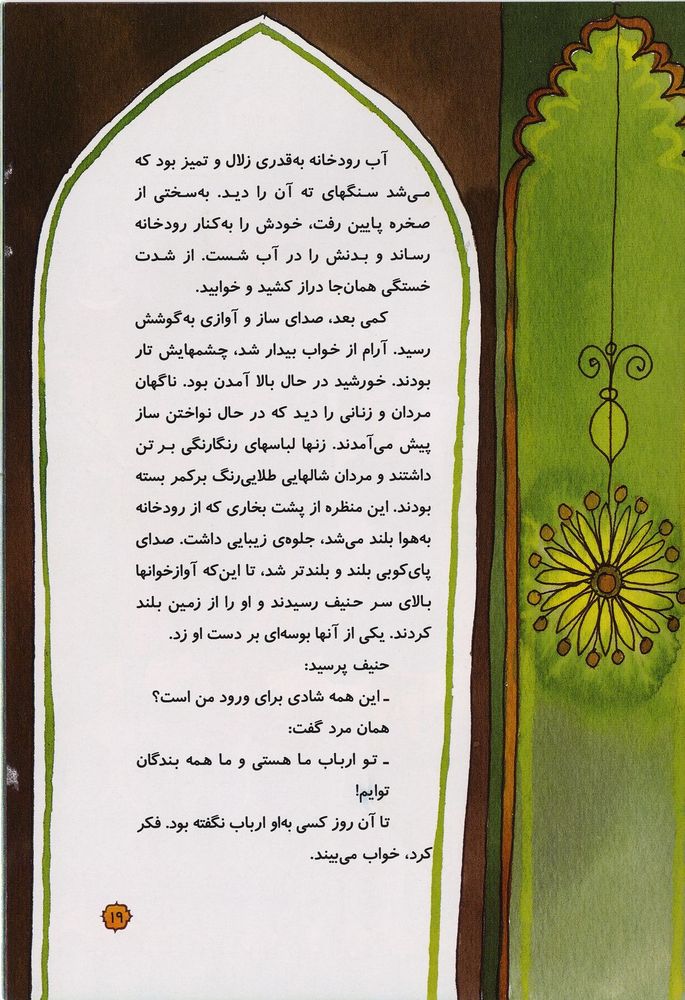 آب رودخانه به‌قدری زلال و تمیز بود که
می‌شد سنگهای ته آن را دید. به‌سختی از
صخره پایین رفت، خودش را به‌کنار رودخانه
رساند و بدنش را در آب شست. از شدت
خستگی همان‌جا دراز کشید و خوابید.
کمی بعد، صدای ساز و آوازی به‌گوشش
رسید. آرام از خواب بیدار شد، چشمهایش تار
بودند. خورشید در حال بالا آمدن بود. ناگهان
مردان و زنانی را دید که در حال نواختن ساز
پیش می‌آمدند. زنها لباسهای رنگارنگی بر تن
داشتند و مردان شالهایی طلایی‌رنگ برکمر بسته
بودند. این منظره از پشت بخاری که از رودخانه
به‌هوا بلند می‌شد، جلوه‌ی زیبایی داشت. صدای
پای‌کوبی بلند و بلندتر شد، تا این‌که آوازخوانها
بالای سر حنیف رسیدند و او را از زمین بلند
کردند. یکی از آنها بوسه‌ای بر دست او زد.
حنیف پرسید:
ـ این همه شادی برای ورود من است؟
همان مرد گفت:
ـ تو ارباب ما هستی و ما همه بندگان
توایم!
تا آن روز کسی به‌او ارباب نگفته بود. فکر
کرد، خواب می‌بیند.
۱۹